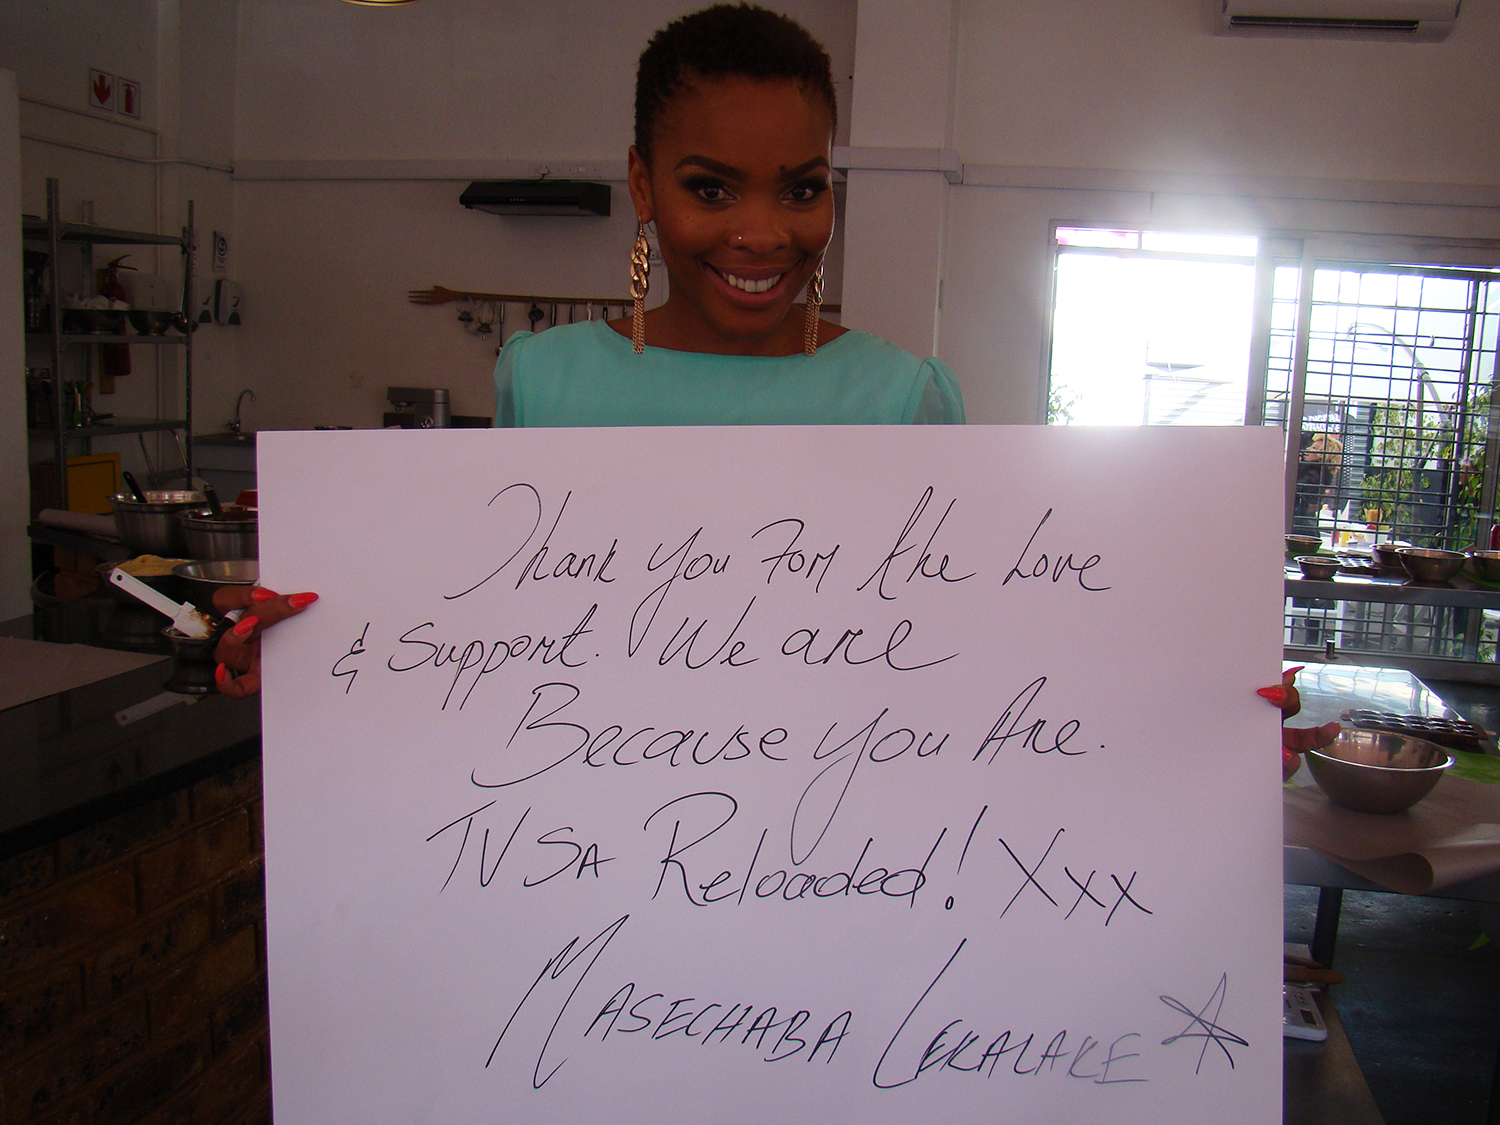 Thank you For the Love
& Support. We are
Because you Are.
TVSA Reloaded! Xxx
MASECHABA LEKALAKE